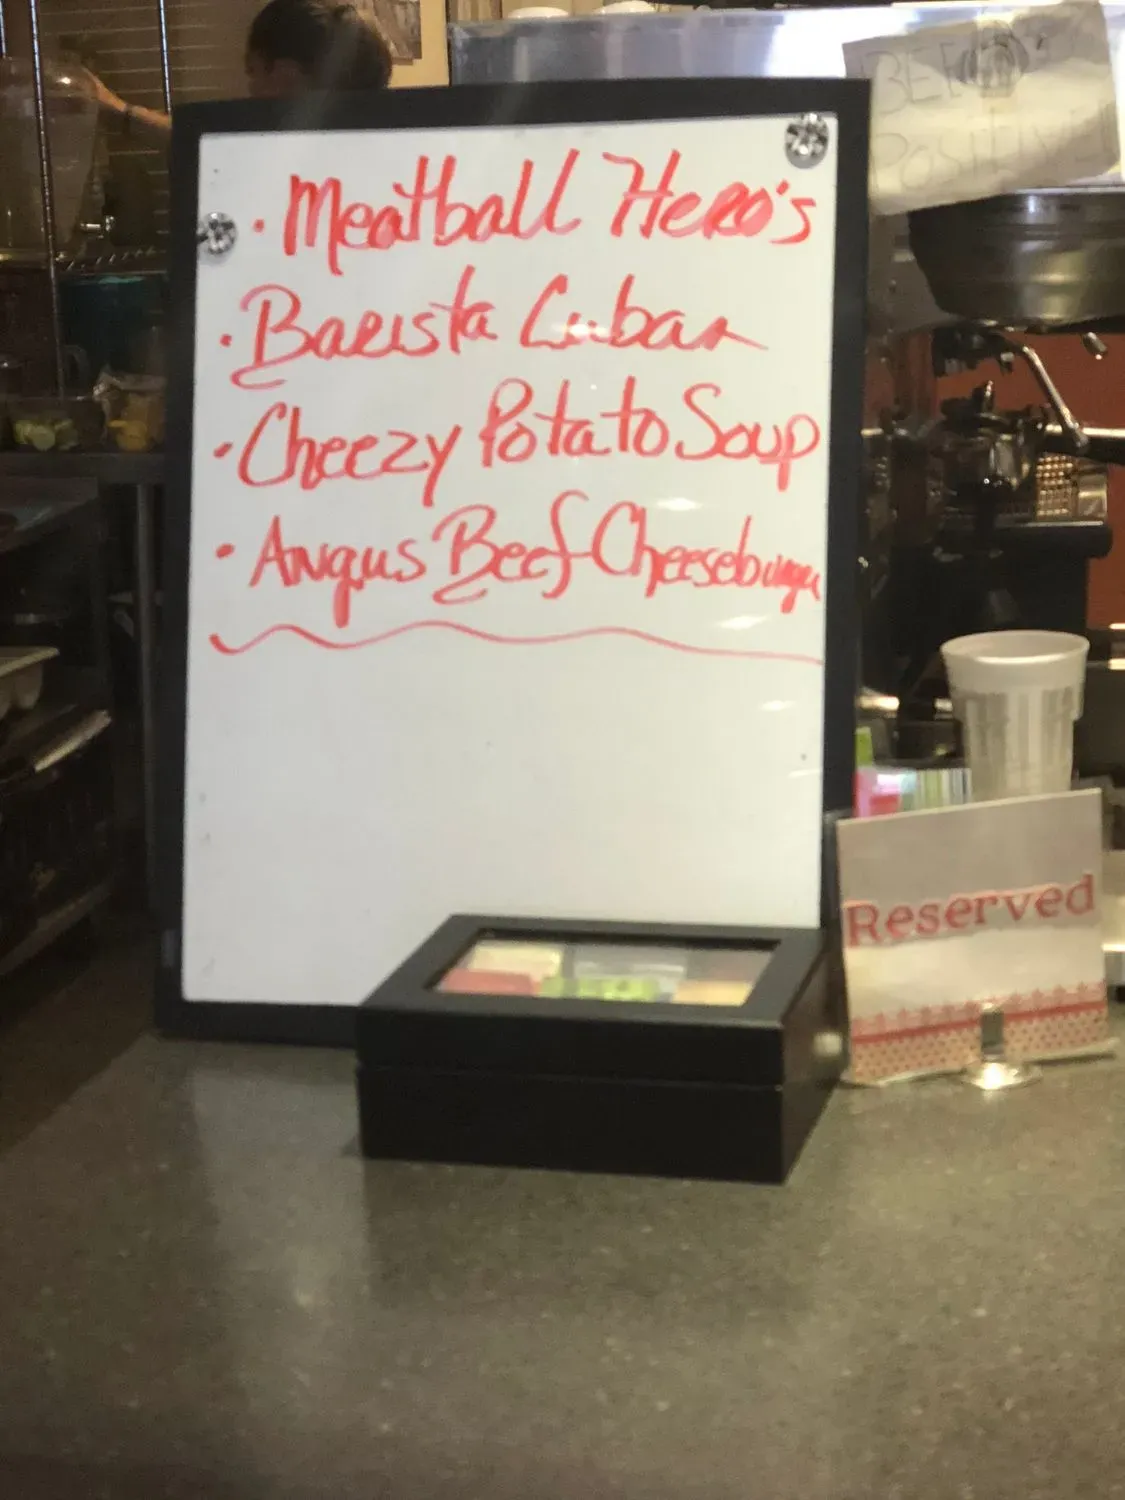 · Meatball Hero's
· Barista Cuban
· Cheezy Potato Soup
· Angus Beef Cheeseburger
Reserved